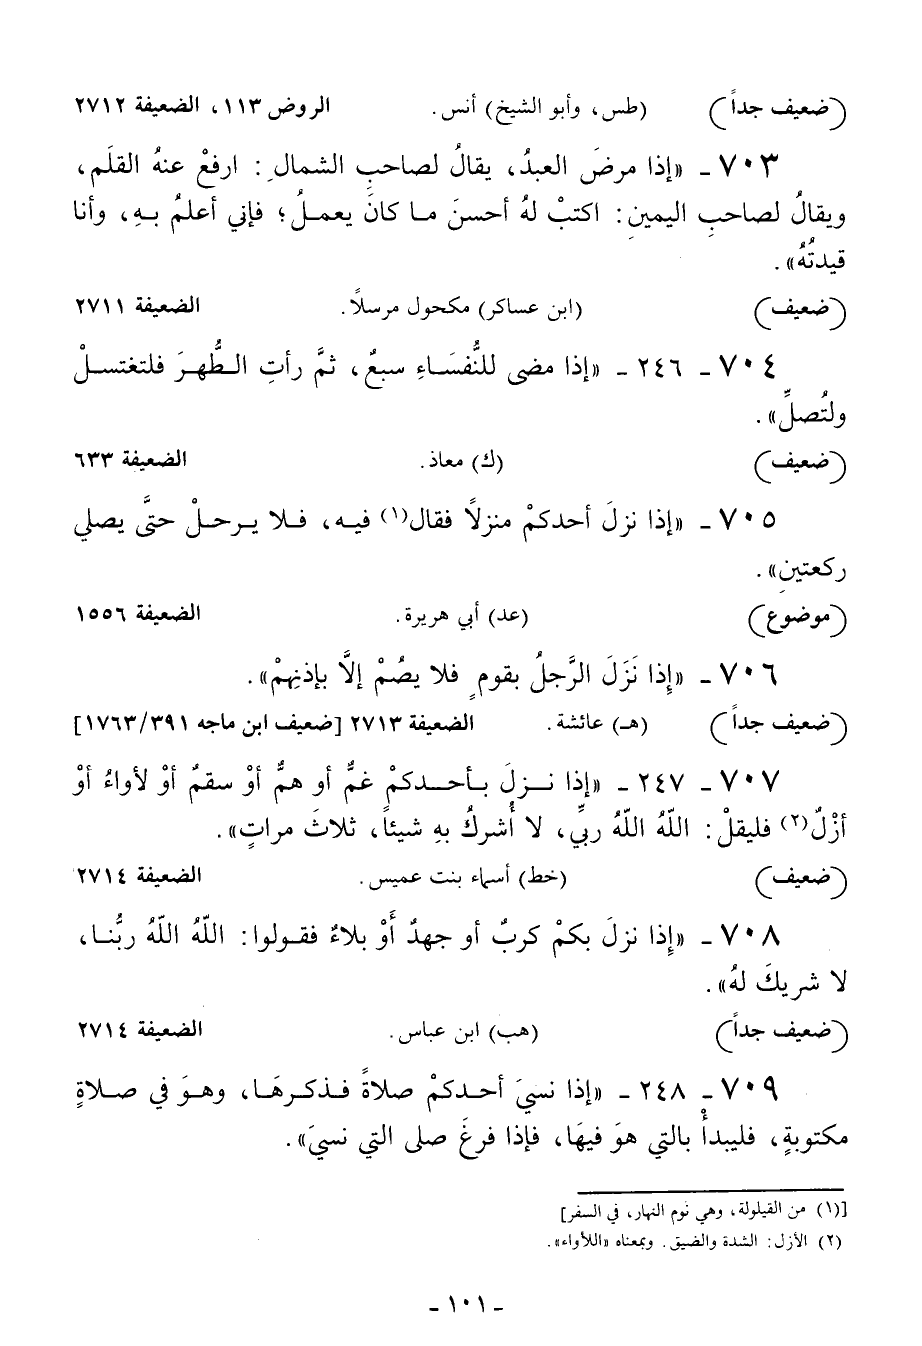 (ضعيف جداً) (طس، وأبو الشيخ) أنس. الروض ١١٣، الضعيفة ٢٧١٢
٧٠٣ ـ «إذا مرضَ العبدُ، يقالُ لصاحبِ الشمالِ: ارفعْ عنهُ القلَم،
ويقالُ لصاحبِ اليمينِ: اكتبْ لهُ أحسنَ ما كانَ يعملُ؛ فإني أعلمُ بهِ، وأنا
قيدتُهُ».
(ضعيف) (ابن عساكر) مكحول مرسلاً. الضعيفة ٢٧١١
٧٠٤ ـ ٢٤٦ ـ «إذا مضى للنُّفسَاءِ سبعٌ، ثمَّ رأتِ الطُّهرَ فلتغتسلْ
ولتُصلِّ».
(ضعيف) (ك) معاذ. الضعيفة ٦٣٣
٧٠٥ ـ «إذا نزلَ أحدكمْ منزلاً فقال(١) فيه، فلا يرحلْ حتَّى يصلي
ركعتينِ».
(موضوع) (عد) أبي هريرة. الضعيفة ١٥٥٦
٧٠٦ ـ «إِذا نَزَلَ الرَّجلُ بقومٍ فلا يصُمْ إلَّا بإذنِهمْ».
(ضعيف جداً) (هـ) عائشة. الضعيفة ٢٧١٣ [ضعيف ابن ماجه ١٧٦٣/٣٩١]
٧٠٧ ـ ٢٤٧ ـ «إذا نزلَ بأحدكمْ غمٌّ أو همٌّ أوْ سقمٌ أوْ لأواءُ أوْ
أزْلٌ(٢) فليقلْ: اللّهُ اللّهُ ربِّي، لا أُشركُ بهِ شيئاً، ثلاثَ مراتٍ».
(ضعيف) (خط) أسماء بنت عميس. الضعيفة ٢٧١٤
٧٠٨ ـ «إِذا نزلَ بكمْ كربٌ أو جهدٌ أَوْ بلاءٌ فقولوا: اللّهُ اللّهُ ربُّنا،
لا شريكَ لهُ».
(ضعيف جداً) (هب) ابن عباس. الضعيفة ٢٧١٤
٧٠٩ ـ ٢٤٨ ـ «إذا نسيَ أحدكمْ صلاةً فذكرهَا، وهوَ في صلاةٍ
مكتوبةٍ، فليبدأْ بالتي هوَ فيهَا، فإذا فرغَ صلى التي نسيَ».
[(١) من القيلولة، وهي نوم النهار، في السفر]
(٢) الأزل: الشدة والضيق. وبمعناه «اللأواء».
ـ ١٠١ ـ